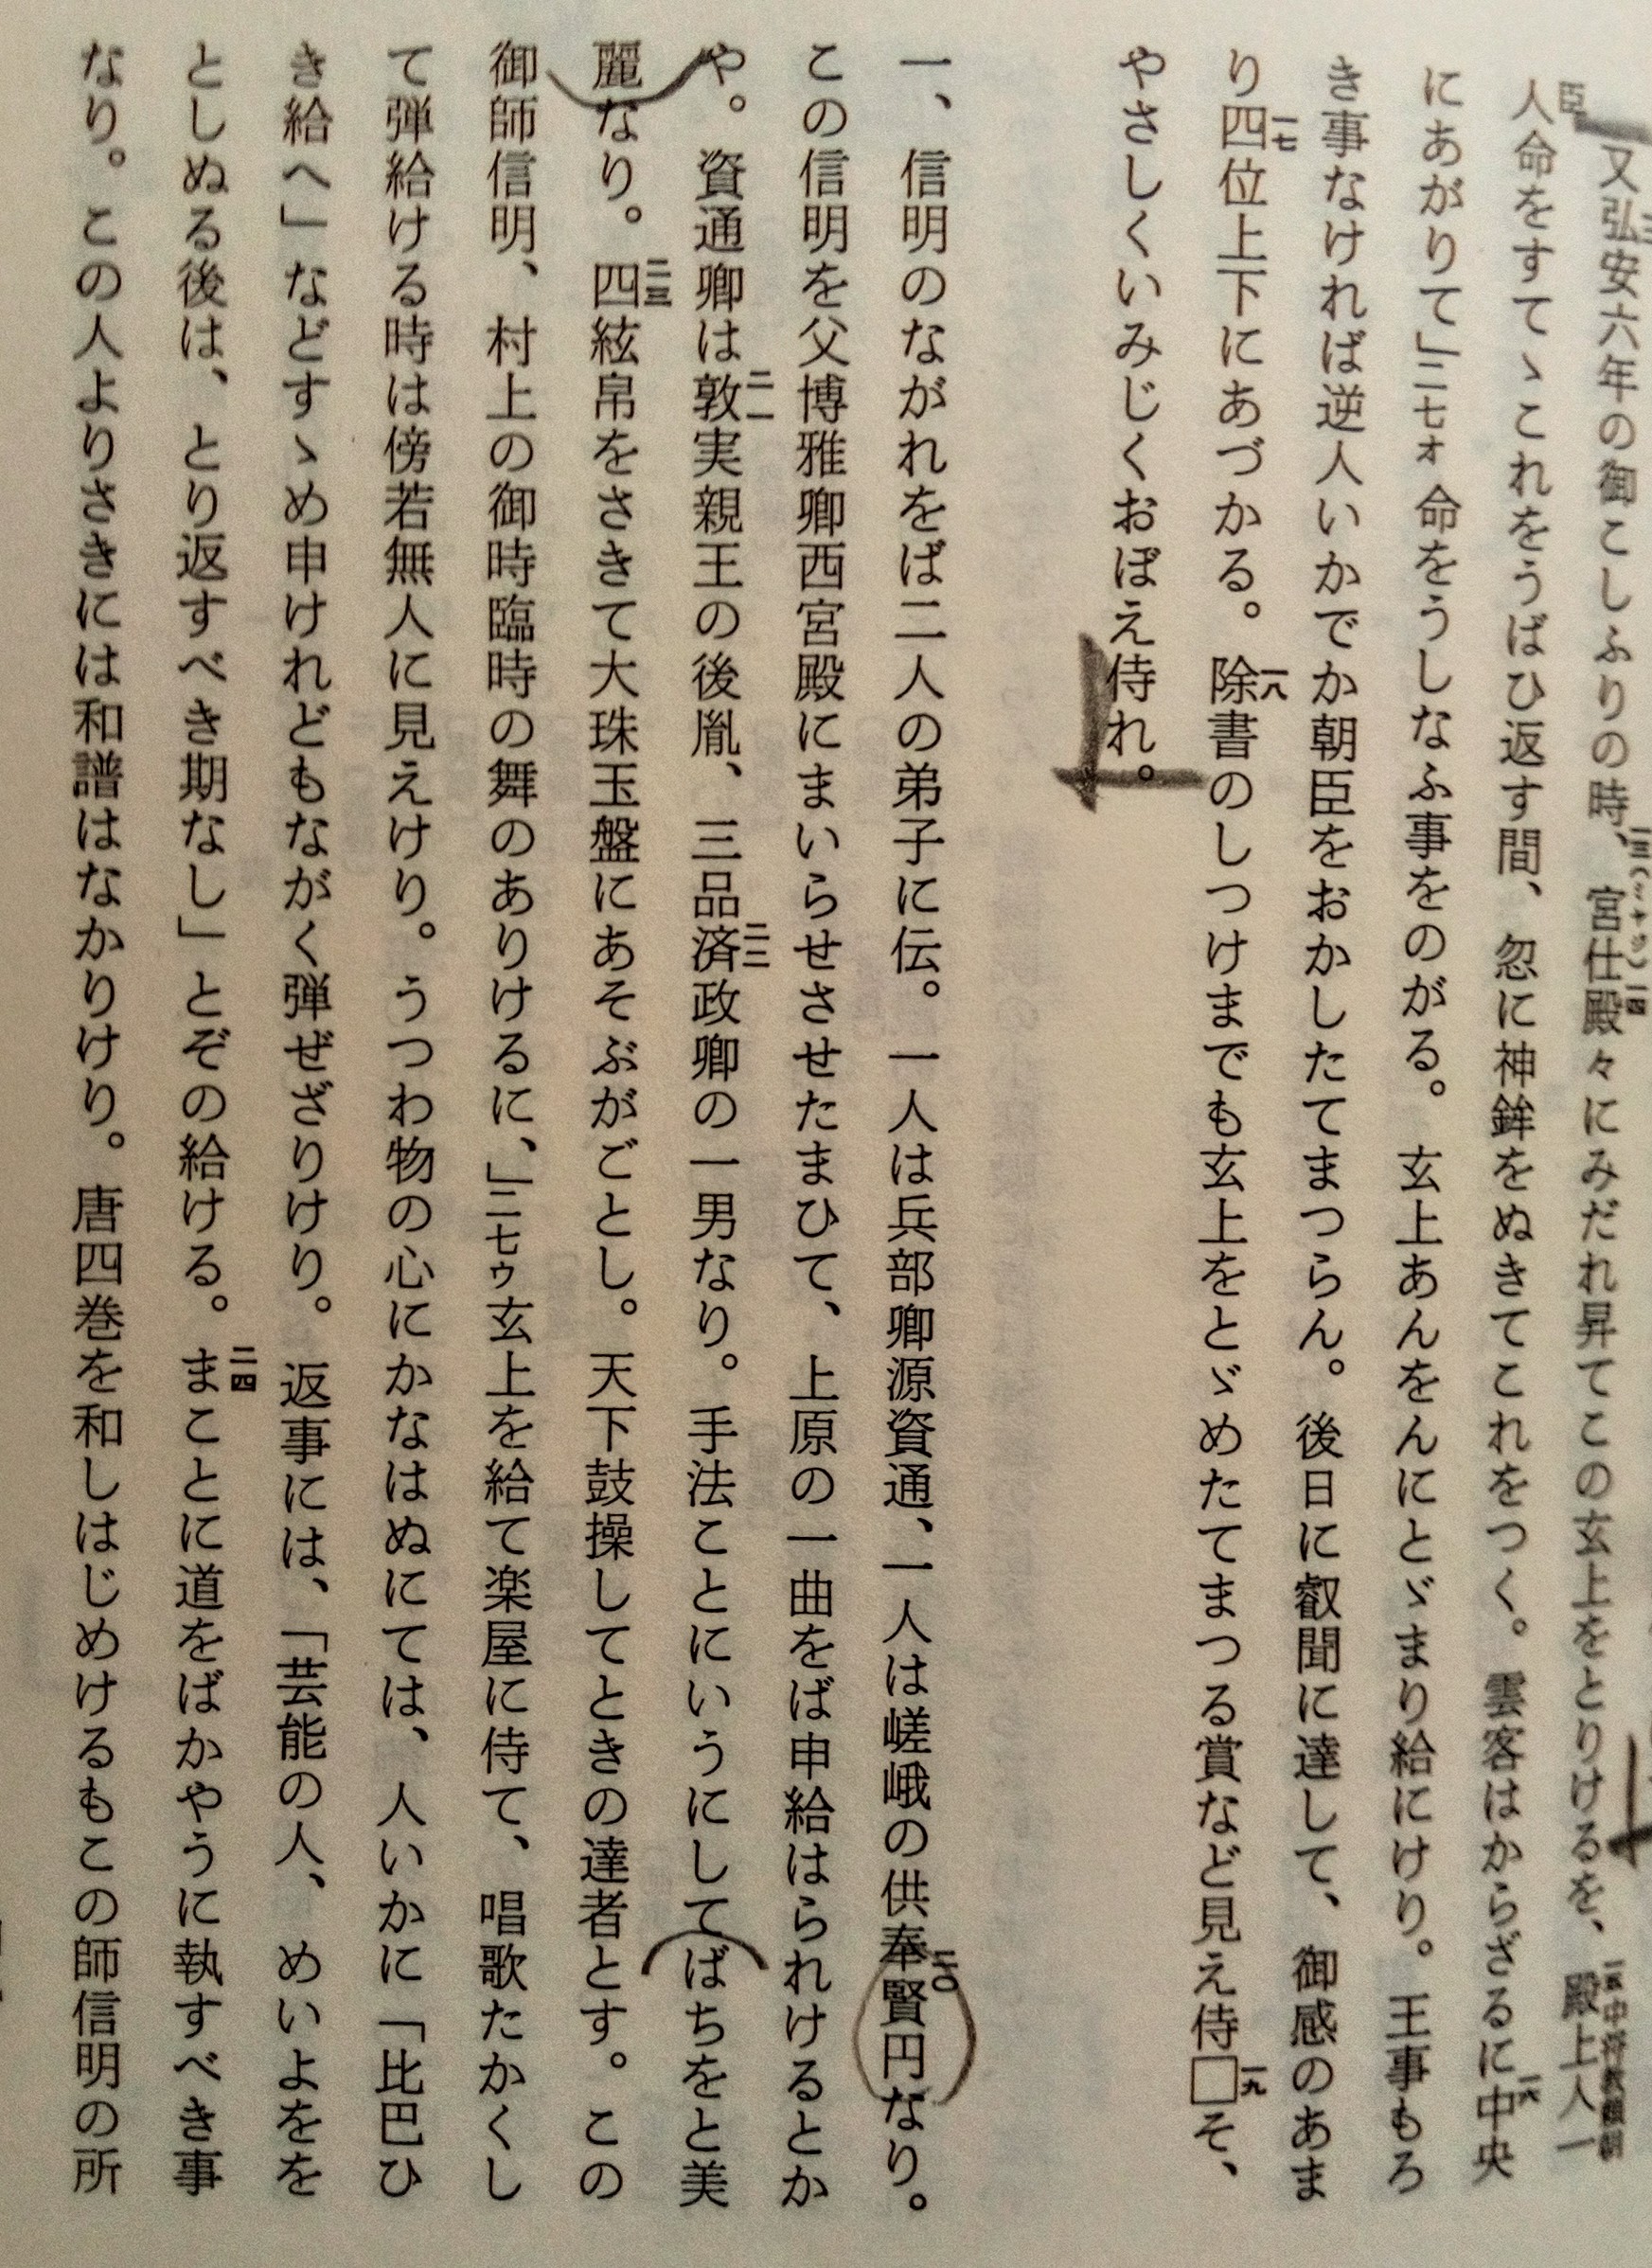 又弘安六年の御こしふりの時、宮仕殿々にみだれ昇てこの玄上をとりけるを、殿上人一
人命をすてゝこれをうばひ返す間、忽に神鉾をぬきてこれをつく。雲客はからざるに中央
にあがりて」二七オ 命をうしなふ事をのがる。玄上あんをんにとゞまり給にけり。王事もろ
き事なければ逆人いかでか朝臣をおかしたてまつらん。後日に叡聞に達して、御感のあま
り四位上下にあづかる。除書のしつけまでも玄上をとゞめたてまつる賞など見え侍□そ、
やさしくいみじくおぼえ侍れ。
一、信明のながれをば二人の弟子に伝。一人は兵部卿源資通、一人は嵯峨の供奉賢円なり。
この信明を父博雅卿西宮殿にまいらせさせたまひて、上原の一曲をば申給はられけるとか
や。資通卿は敦実親王の後胤、三品済政卿の一男なり。手法ことにいうにしてばちをと美
麗なり。四絃帛をさきて大珠玉盤にあそぶがごとし。天下鼓操してときの達者とす。この
御師信明、村上の御時臨時の舞のありけるに、」二七ウ玄上を給て楽屋に侍て、唱歌たかくし
て弾給ける時は傍若無人に見えけり。うつわ物の心にかなはぬにては、人いかに「比巴ひ
き給へ」などすゝめ申けれどもながく弾ぜざりけり。返事には、「芸能の人、めいよをを
としぬる後は、とり返すべき期なし」とぞの給ける。まことに道をばかやうに執すべき事
なり。この人よりさきには和譜はなかりけり。唐四巻を和しはじめけるもこの師信明の所